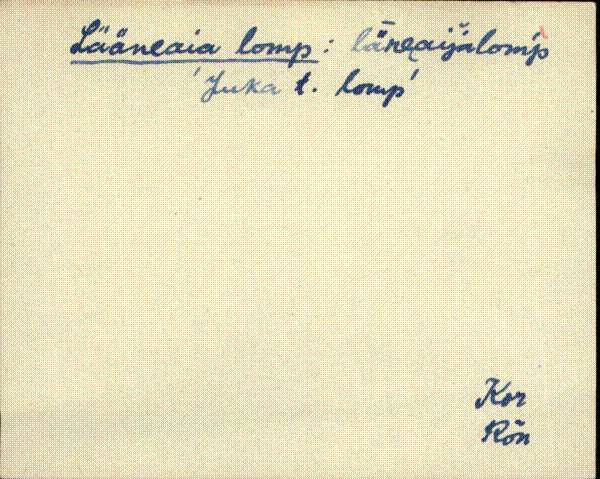 Lääneaia lomp: lāneaijalomp
'Juka t. lomp'
Kor
Rõn